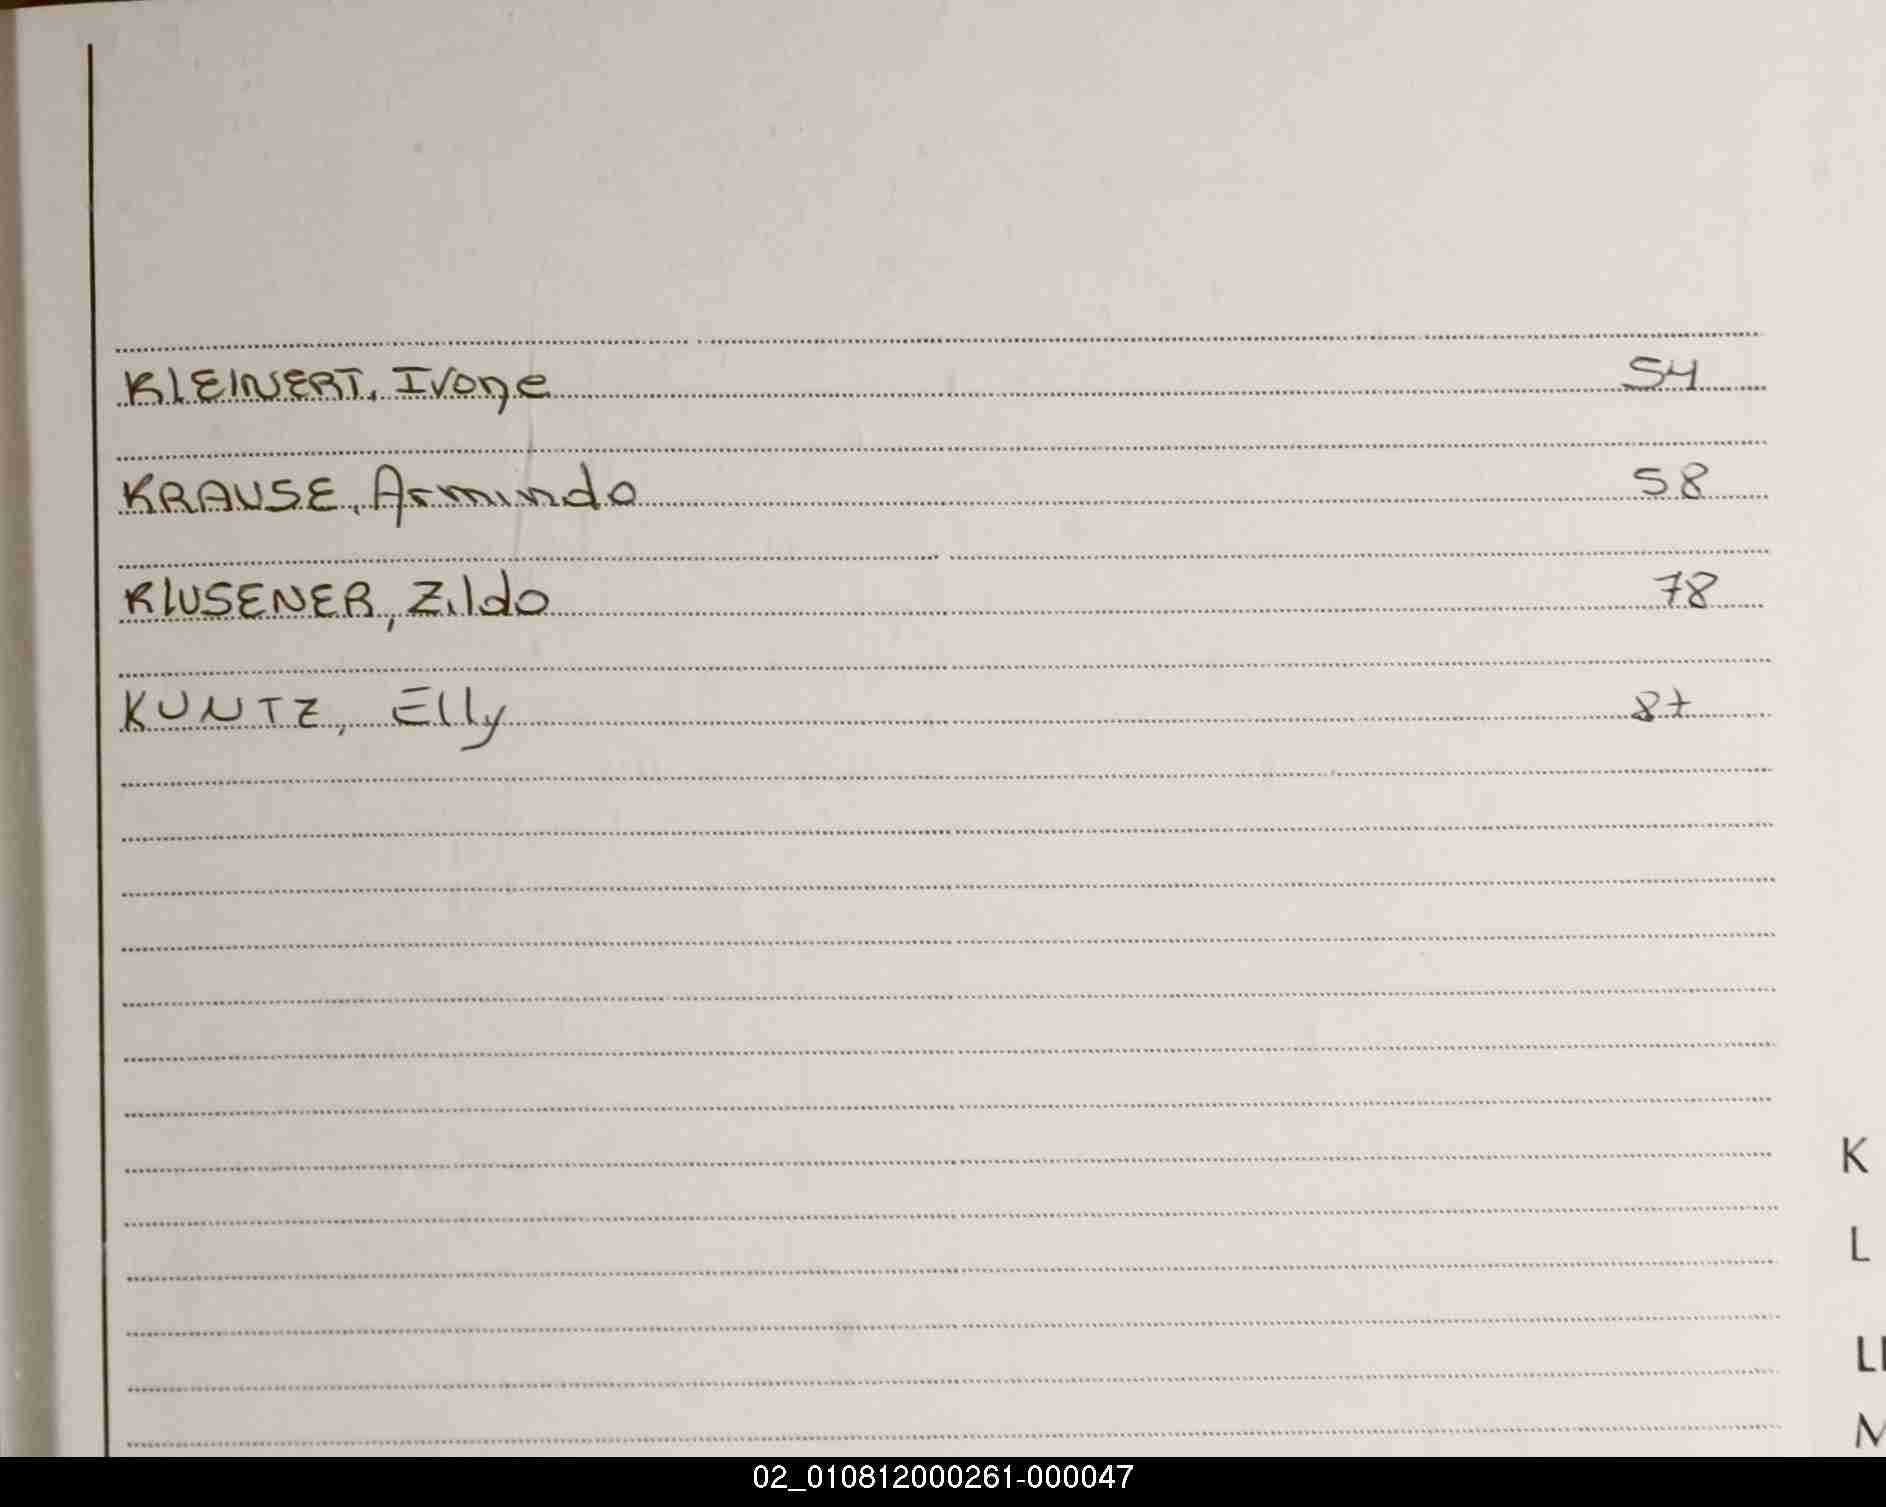 KLEINERT, Ivone 54
KRAUSE, Armindo 58
KLUSENER, Zildo 78
KUNTZ, Elly 87
K
L
M
02_010812000261-000047